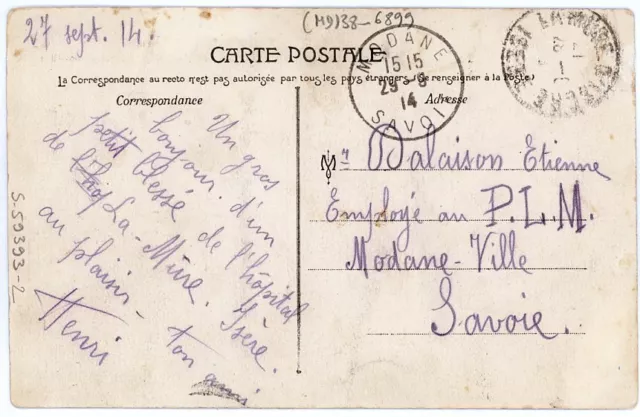 27 sept. 14.
(M9)38-6899
CARTE POSTALE
La Correspondance au recto n'est pas autorisée par tous les pays étrangers (Se renseigner à la Poste)
Correspondance
Adresse
MODANE
1515
29-9
14
SAVOIE
Un gros
bonjour d'un
petit blessé de l'hôpital
de La-Mûre. Isère.
au plaisir - ton ami
Henri
Mr Balaison Etienne
Employé au P.L.M.
Modane-Ville
Savoie.
S-59393-2